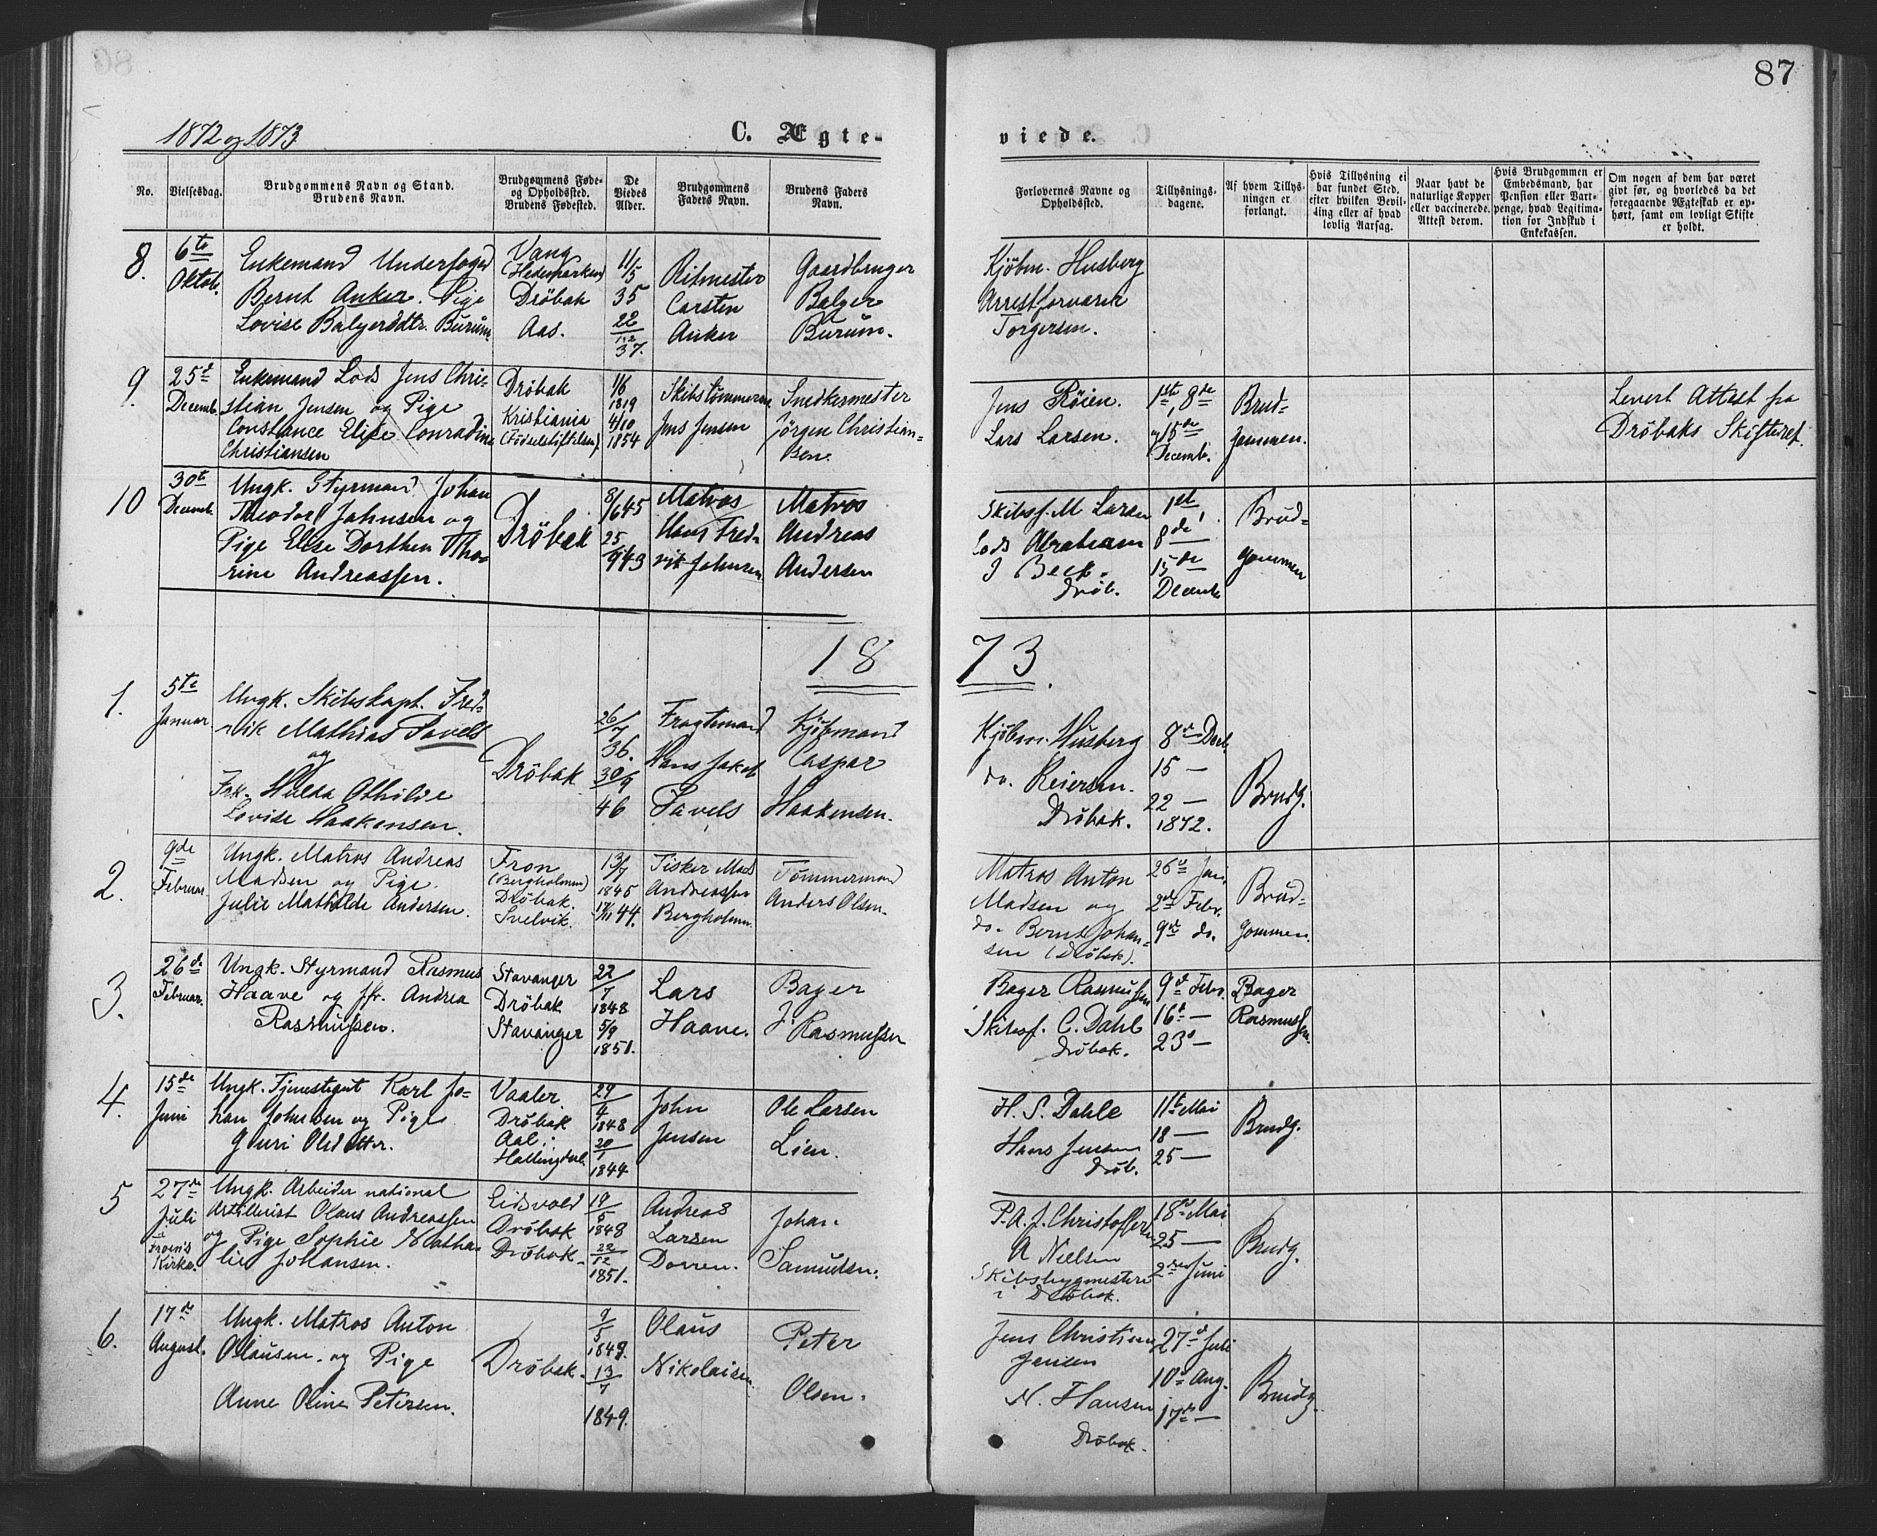 87
1872 og 1873
C. Ægte-
viede.
No.
Vielsesdag.
Brudgommens Navn og Stand.
Brudens Navn.
Brudgommens Føde-
og Opholdssted.
Brudens Fødested.
De
Viedes
Alder.
Brudgommens
Faders Navn.
Brudens Faders
Navn.
Forlovernes Navne og
Opholdssted.
Tillysnings-
dagene.
Af hvem Tillys-
ningen er
forlangt.
Hvis Tillysning ei
har fundet Sted,
efter hvilken Bevil-
ling eller af hvad
lovlig Aarsag.
Naar havt de
naturlige Kopper
eller vaccinerede.
Attest derom.
Hvis Brudgommen er
Embedsmand, har
Pension eller Vart-
penge, hvad Legitima-
tion for Indskud i
Enkekassen.
Om nogen af dem har været
givt før, og hvorledes da det
foregaaende Ægteskab er op-
hørt, samt om lovligt Skifte
er holdt.
8.
6te
Oktob.
Enkemand Underfoged
Bernt Anker. Pige
Lovise Balgersdtr. Burum.
Vang
(Hedemarken)
Drøbak
Aas.
11/5
35
22/12
37.
Ritmester
Carsten
Anker
Gaardbruger
Balger
Burum.
Kjøbm. Husberg
Arrestforvarer
Torgersen.
9.
25de
Decemb.
Enkemand Lods Jens Chri-
stian Jensen og Pige
Constance Elise Conradine
Christiansen
Drøbak
Kristiania
(Fødselsstiftelsen).
1/6
1819
4/10
1854
Skibstømmerm.
Jens Jensen
Snedkermester
Jørgen Christian-
sen.
Jens Røien.
Lars Larsen.
1ste, 8de
og 15de
Decemb.
Brud-
gommen.
Levert Attest fra
Drøbaks Skifteret.
10
30te
Decemb.
Ungk. Styrmand Johan
Theodor Johnsen og
Pige Elise Dorthea Tho-
rine Andreassen.
Drøbak
8/6 45
25/9 49
Matros
Hans Fred-
rik Johnsen
Matros
Andreas
Andersen
Skibsf. M Larsen
Lods Abraham
J Beck.
Drøb.
1ste,
8de
15de
Decemb
Brud-
gommen
1873.
1.
5te
Januar.
Ungk. Skibskapt. Fred-
rik Mathias Pavels
og
Frk. Hulda Othilie
Lovise Haakensen.
Drøbak.
26/7
36.
30/9
46
Fragtemand
Hans Jakob
Pavels
Kjøbmand
Caspar
Haakensen.
Kjøbm. Husberg
do. Reiersen.
Drøbak.
8de Decb.
15 —
22 —
1872.
Brudg.
2.
9de
Februar.
Ungk. Matros Andreas
Madsen og Pige
Julie Mathilde Andersen.
Fron
(Bergholmen)
Drøbak.
Svelvik.
13/7
1845
17/11 44.
Fisker Mads
Andreassen
Bergholmen
Tømmermand
Anders Olsen.
Matros Anton
Madsen og
do. Bernt Johan-
sen (Drøbak).
26de Jan.
2den Febr.
9de do.
Brud-
gommen.
3.
26de
Februar.
Ungk. Styrmand Rasmus
Haave og Jfr. Andrea
Rasmussen.
Stavanger
Drøbak
Stavanger
22/7
1848
5/9
1851.
Lars
Haave.
Bager
J. Rasmussen
Bager Rasmussen
Skibsf. C. Dahl
Drøbak.
9de Febr.
16de —
23de —
Bager
Rasmussen.
4.
15de
Juni
Ungk. Tjenestegut Karl Jo-
han Johnsen og Pige
Guri Olsdatter.
Vaaler.
Drøbak
Aal i
Hallingdal.
29/4
1848
20/1
1844
John
Jensen
Ole Larsen
Lien.
H. S. Dahle
Hans Jensen
Drøb.
11te Mai
18 —
25 —
Brudg.
5
27de
Juli
i Froens
Kirke.
Ungk. Arbeider national
Artillerist Olaus Andreassen
og Pige Sophie Natha-
lie Johansen.
Eidsvold
Drøbak
Drøbak.
19/5
1848
22/12
1851.
Andreas
Larsen
Dorren.
Johan
Samuelsen.
P. A. J. Christoffersen
A Nielsen
Skibsbygmestere
i Drøbak.
18de Mai
25 —
2den Juni
Brudg.
6.
17de
August.
Ungk. Matros Anton
Olausen og Pige
Anne Oline Petersen.
Drøbak.
9/5
1849.
13/7
1849.
Olaus
Nikolaisen.
Peter
Olsen.
Jens Christian
Jensen
N. Hansen
Drøbak.
27de Juli
10de Aug.
17de —
Brudg.